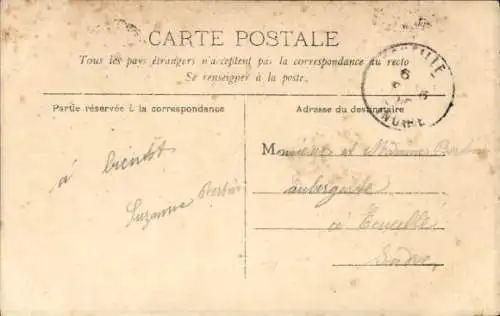 CARTE POSTALE
Tous les pays étrangers n'acceptent pas la correspondance au recto
Se renseigner à la poste.
Partie réservée à la correspondance
Adresse du destinataire
à bientôt
Suzanne
Monsieur et Madame
aubergiste
à
Indre
6
6
INDRE